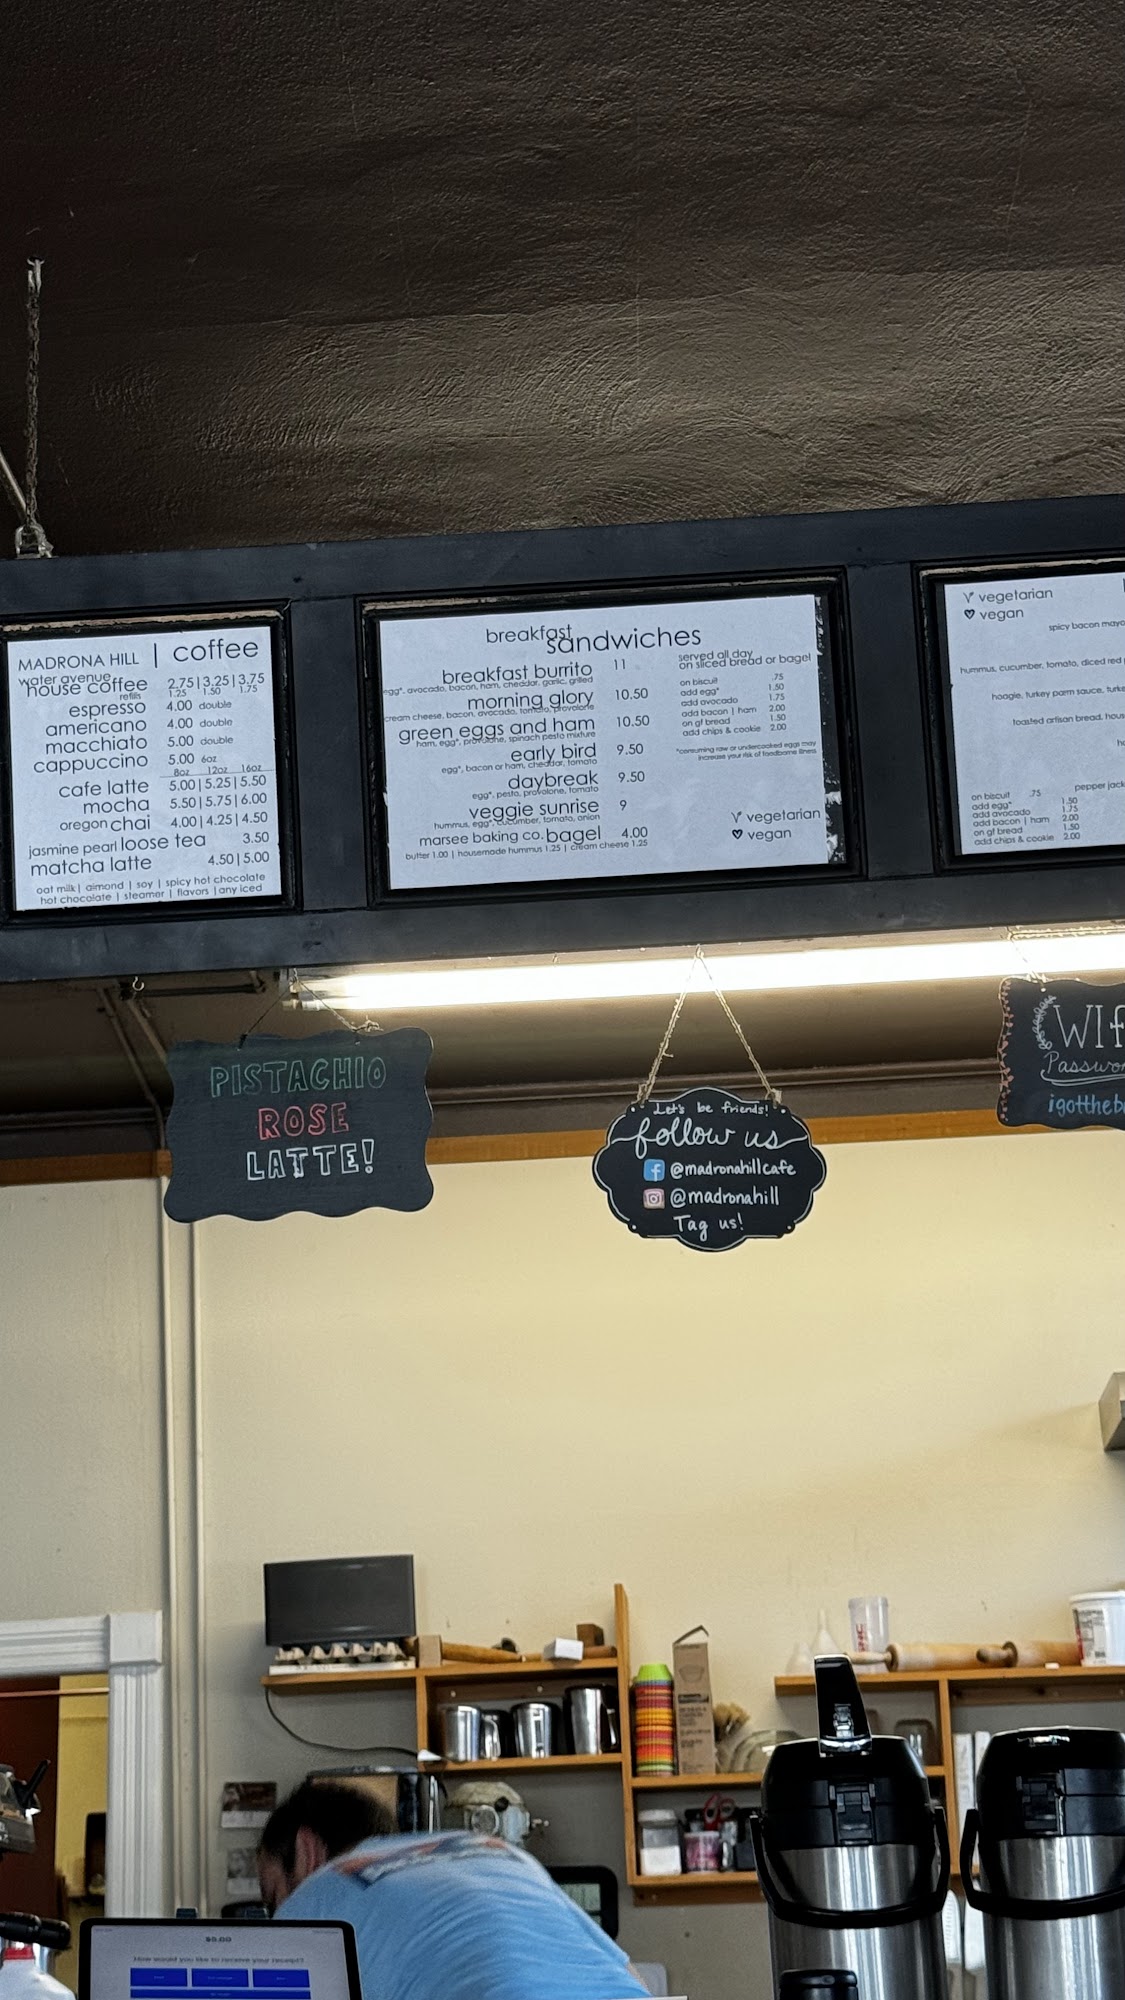 MADRONA HILL | coffee
water avenue
house coffee 2.75|3.25|3.75
refills 1.25 1.50 1.75
espresso 4.00 double
americano 4.00 double
macchiato 5.00 double
cappuccino 5.00 6oz
8oz 12oz 16oz
cafe latte 5.00|5.25|5.50
mocha 5.50|5.75|6.00
oregon chai 4.00|4.25|4.50
jasmine pearl loose tea 3.50
matcha latte 4.50|5.00
oat milk| almond | soy | spicy hot chocolate
hot chocolate | steamer | flavors |any iced
breakfast
sandwiches
breakfast burrito 11
egg*, avocado, bacon, ham, cheddar, garlic, grilled
morning glory 10.50
cream cheese, bacon, avocado, tomato, provolone
green eggs and ham 10.50
ham, egg*, provolone, spinach pesto mixture
early bird 9.50
egg*, bacon or ham, cheddar, tomato
daybreak 9.50
egg*, pesto, provolone, tomato
veggie sunrise 9
hummus, egg*, cucumber, tomato, onion
marsee baking co. bagel 4.00
butter 1.00 | housemade hummus 1.25 | cream cheese 1.25
served all day
on sliced bread or bagel
on biscuit .75
add egg* 1.50
add avocado 1.75
add bacon | ham 2.00
on gf bread 1.50
add chips & cookie 2.00
*consuming raw or undercooked eggs may
increase your risk of foodborne illness
V vegetarian
vegan
V vegetarian
vegan
spicy bacon mayo
hummus, cucumber, tomato, diced red
hoagie, turkey parm sauce,
toasted artisan bread,
pepper jack
on biscuit .75
add egg* 1.50
add avocado 1.75
add bacon | ham 2.00
on gf bread 1.50
add chips & cookie 2.00
PISTACHIO
ROSE
LATTE!
Let's be friends!
follow us
@madronahillcafe
@madronahill
Tag us!
WIf
Passwor
igottheb
$0.00
How would you like to receive your receipt?